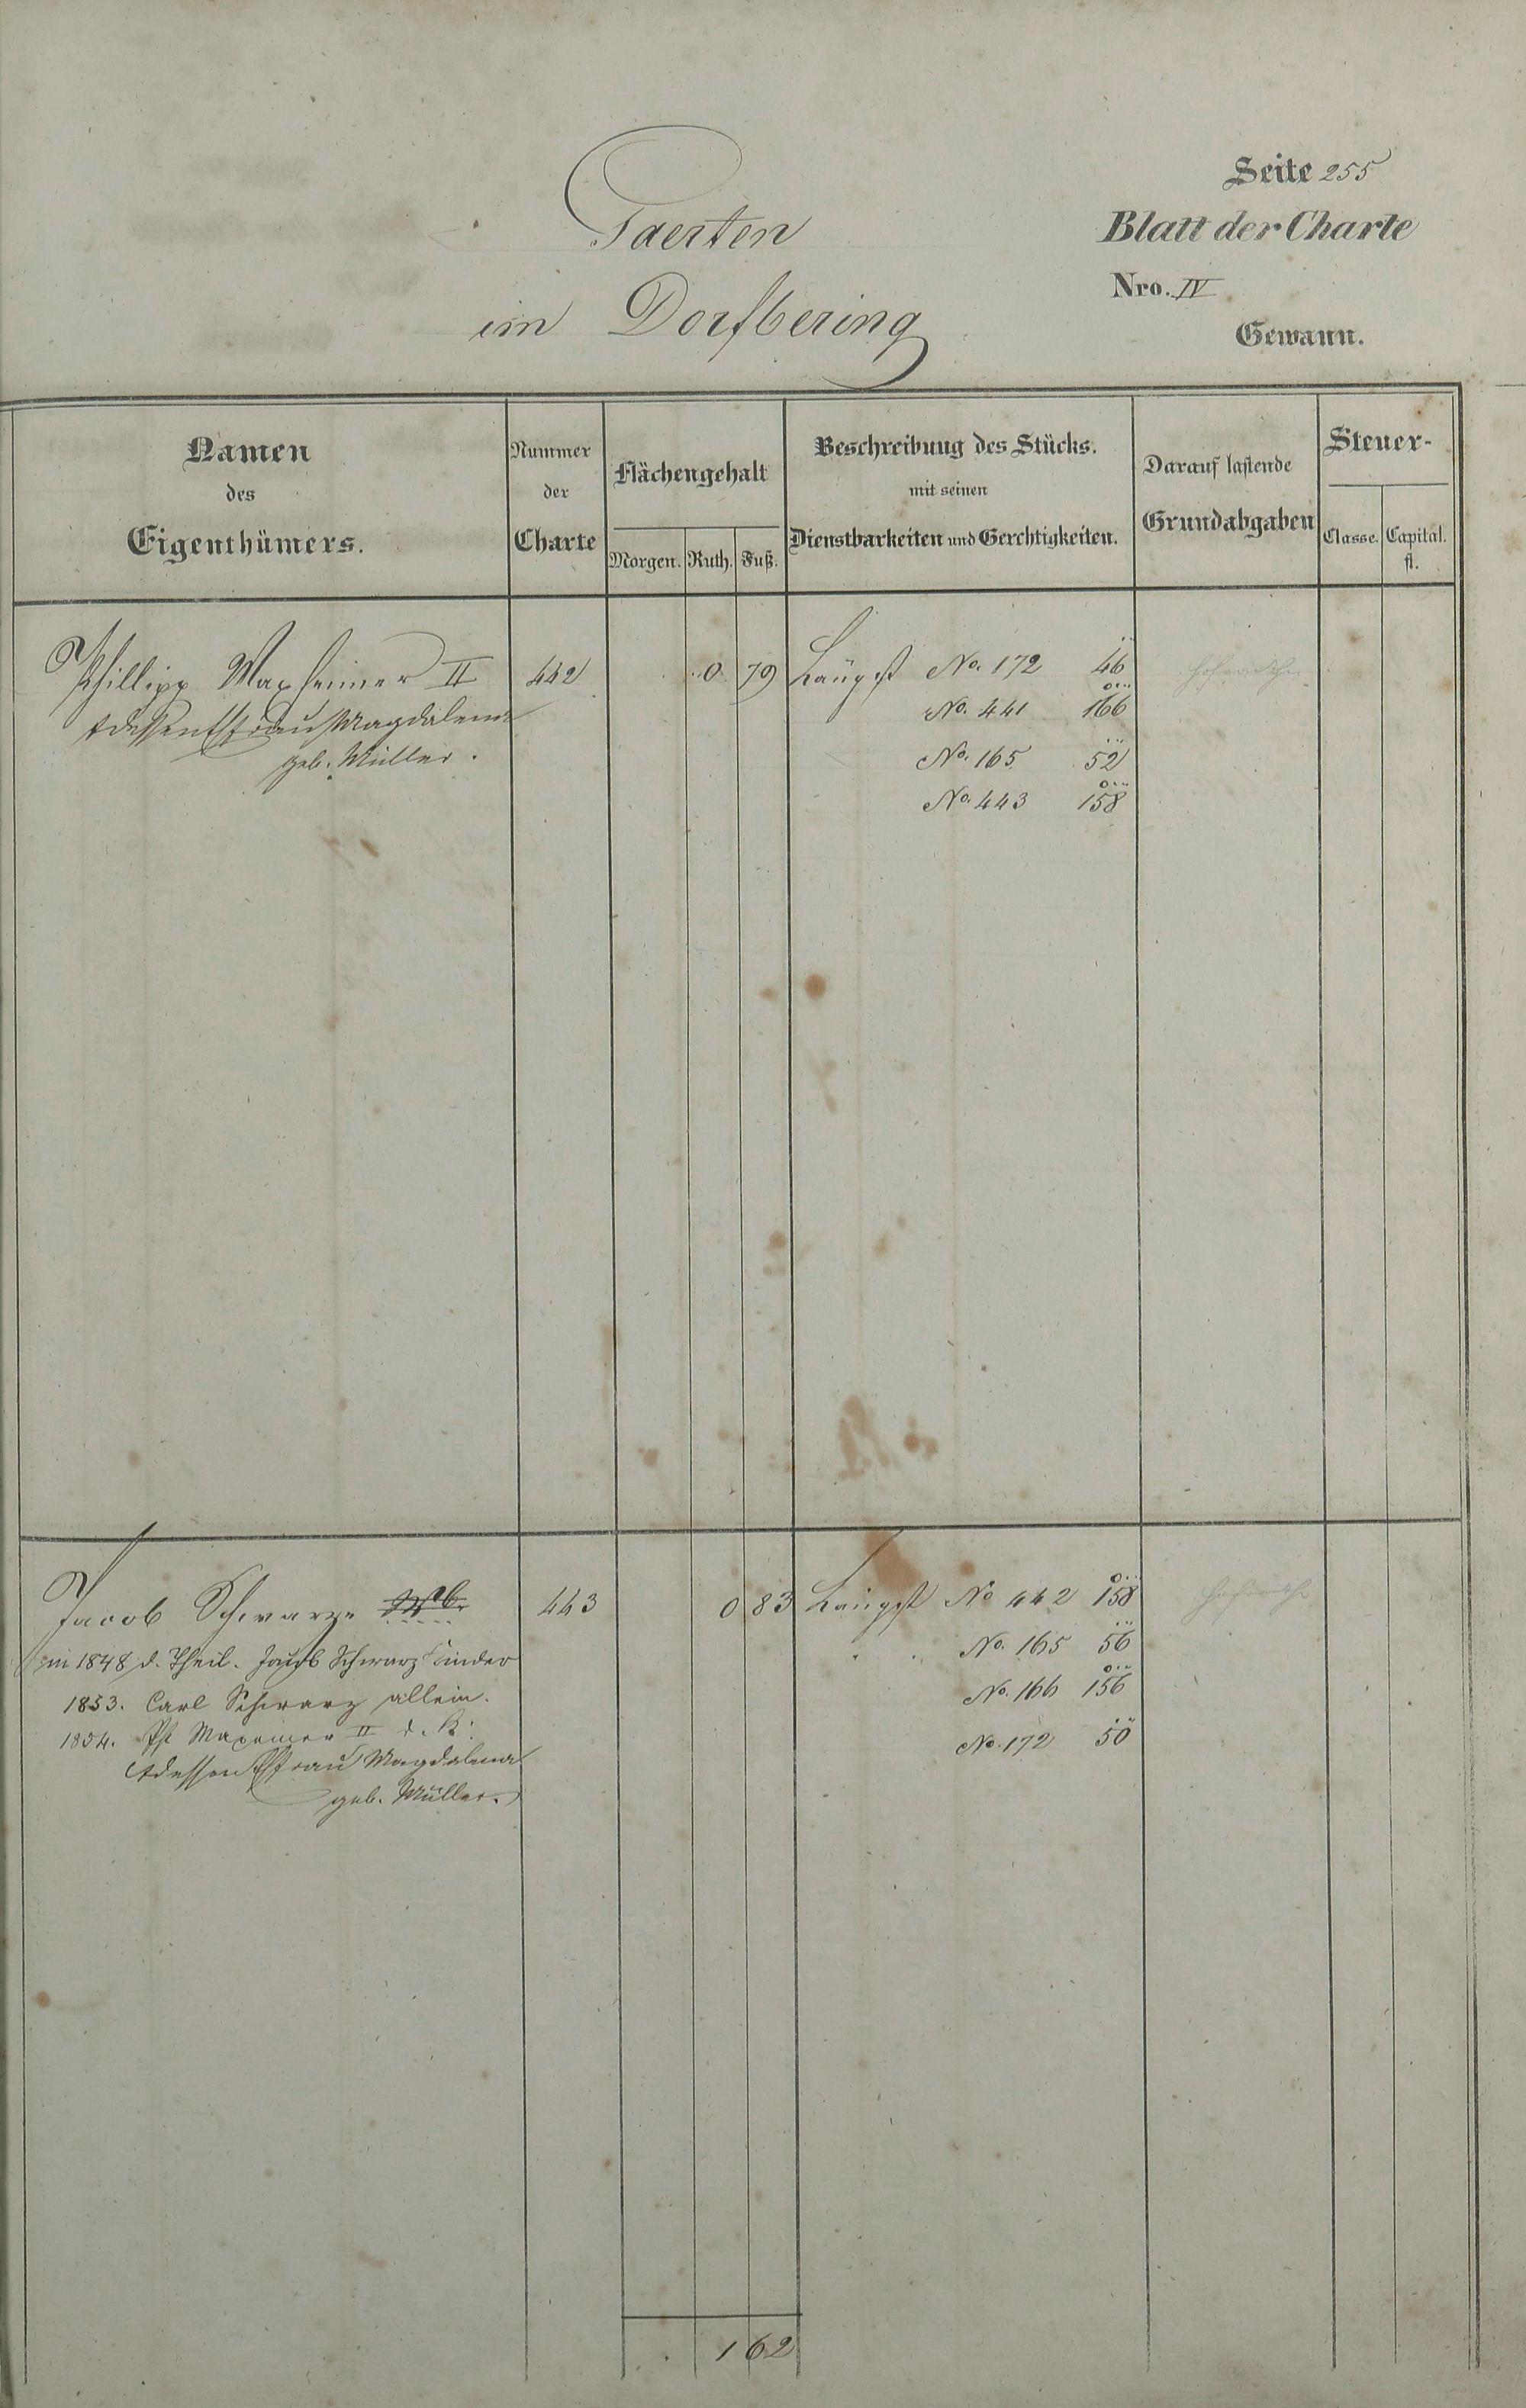 Seite 255
Gaerten
Blatt der Charte
im Dorfbering
Nro. IV
Gewann.
Namen
des
Eigenthümers.
Nummer
der
Charte
Flächengehalt
Morgen. Ruth. Fuß.
Beschreibung des Stücks.
mit seinen
Dienstbarkeiten und Gerchtigkeiten.
Darauf lastende
Grundabgaben
Steuer-
Classe. Capital.
fl.
Phillipp Maxheimer II 442 0 79 Längst No. 172 46
No. 441 166
&dessen Ehfrau Magdalena
No. 165 52
geb. Müller.
No. 443 158
Jacob Schwarz 443 0 83 Längst No 442 158
in 1848 d. Theil. Jacob Schwarz Kinder
No. 165 56
1853. Carl Schwarz allein.
No. 166 156
1854. Ph Maxeimer II d. K:
No. 172 50
&dessen Ehfrau Magdalena
geb. Müller.
1 62